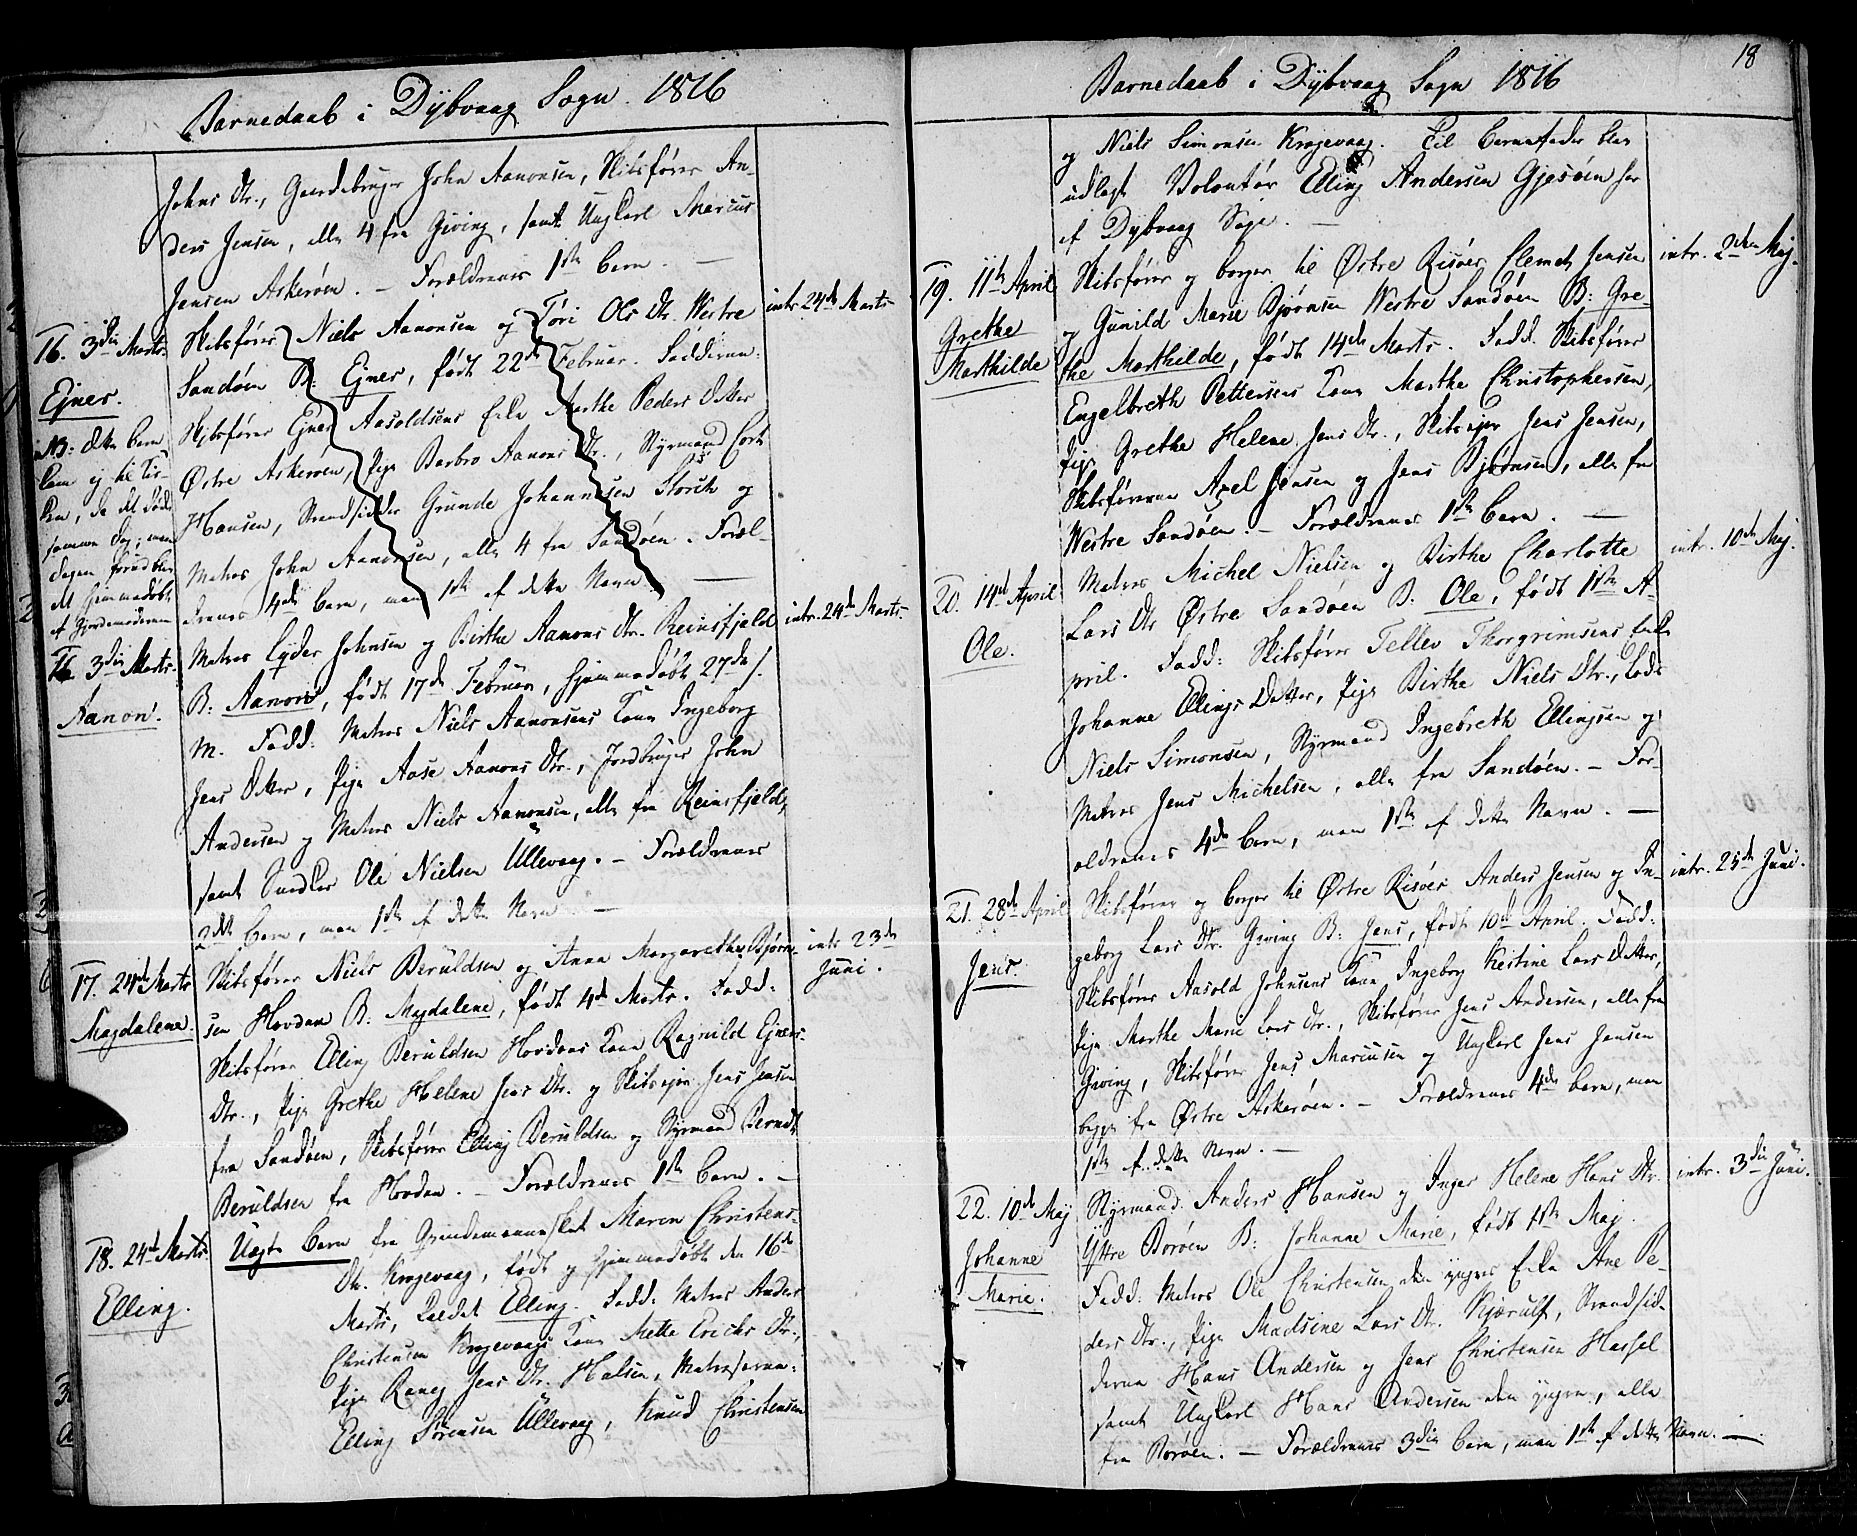 Barnedaab i Dÿbvaag Sogn. 1816
Johns Dtr., Gaardbruger John Aanonsen, Skibsfører An-
ders Jensen, alle 4 fra Giving, samt Ungkarl Marcus
Jensen Askerøen. — Forældrenes 1ste Barn. —
16. 3die Marts.
Ejner.
NB: dette Barn
kom ej til Kir-
ken, da det døde
samme Dag; men
dagen forud blev
det hjemmedøbt
af Jordemoderen
Skibsfører Niels Aanonsen og Tøri Ols Dtr. Westre
Sandøen B: Ejner, født 22de Februar. Fadderne:
Skibsfører Ejner Aasoldsens Enke Marthe Peders Datter
Østre Askerøen, Pige Barbro Aanons Dtr., Styrmand Cort
Hansen, Strandsidder Grunde Johannesen Storch og
Matros John Aanonsen, alle 4 fra Sandøen. Foræl-
drenes 4de Barn, men 1ste af dette Navn. —
intr. 24de Marts
16. 3die Marts.
Aanon.
Matros Eyder Johnsen og Birthe Aanons Dtr. Reinsfjeld
B: Aanon, født 17de Februar, hjemmedøbt 27de s.
m. Fadd: Matros Niels Aanonsens Kone Ingeborg
Jens Datter, Pige Aase Aanons Dtr., Jordbruger John
Andersen og Matros Niels Aanonsen, alle fra Reinsfjeld,
samt Snedker Ole Nielsen Üllevaag. — Forældrenes
2det Barn, men 1ste af dette Navn —
intr. 24de Marts.
17. 24de Marts
Magdalene.
Skibsfører Niels Berüldsen og Anna Margarethe Bjørn-
sen Hovdan B: Magdalene, født 4de Marts. Fadd:
Skibsfører Elling Berüldsen Hovdens Kone Ragnild Ejners
Dtr., Pige Grethe Helene Jens Dtr. og Skibsejer Jens Jensen
fra Sandøen, Skibsfører Elling Berüldsen og Styrmand Berndt
Berüldsen fra Hovden. — Forældrenes 1ste Barn. —
intr 23de
Juni.
18. 24de Marts
Elling.
Uægte Barn fra Qvindemennesket Maren Christens
Dtr. Krogevaag, født og hjemmedøbt den 16de
Marts, kaldet Elling. Fadd: Matros Anders
Christensen Krogevaags Kone Mette Erichs Dtr.,
Pige Raneg Jens Dtr. Halsen, Matroserne:
Elling Sørensen Üllevaag, Knud Christensen
Barnedaab i Dÿbvaag Sogn 1816
18
og Niels Simonsen Krogevaag. Til Barnefader blev
udlagt Volontør Elling Andersen Gjesøen her
af Dybvaag Sogn. —
19. 11te April
Grethe
Mathilde
Skibsfører og Borger til Østre Risøer Clemet Jensen
og Gunild Marie Bjørnsen Westre Sandøen B: Gre-
the Mathilde, født 14de Marts. Fadd. Skibsfører
Engelbreth Pettersens Kone Marthe Christophersen,
Pige Grethe Helene Jens Dtr., Skibsejer Jens Jensen,
Skibsførerne Axel Jensen og Jens Bjørnsen, alle fra
Westre Sandøen. — Forældrenes 1ste Barn. —
intr. 2den Maj.
20. 14de April
Ole.
Matros Michel Nielsen og Birthe Charlotte
Lars Dtr Østre Sandøen B: Ole, født 1ste A-
pril. Fadd: Skibsfører Tellev Thorgrimsens Enke
Johanne Ellings Datter, Pige Birthe Niels Dtr., Lods
Niels Simonsen, Styrmand Ingebreth Ellingsen og
Matros Jens Michelsen, alle fra Sandøen. — For-
ældrenes 4de Barn, men 1ste af dette Navn. —
intr. 10de Maj.
21. 28de April
Jens.
Skibsfører og Borger til Østre Risøer Anders Jensen og In-
geborg Lars Dtr. Giving B: Jens, født 10de April. Fadd:
Skibsfører Aasold Johnsens Kone Ingeborg Kestine Lars Datter,
Pige Marthe Marie Lars Dtr., Skibsfører Jens Andersen, alle fra
Giving, Skibsfører Jens Marcusen og Ungkarl Jens Jensen
begge fra Østre Askerøen. — Forældrenes 4de Barn, men
1ste af dette Navn. —
intr. 25de Juni.
22. 10de Maj
Johanne
Marie.
Styrmand Anders Hansen og Inger Helene Hans Dtr.
Yttre Borøen B: Johanne Marie, født 1ste Maj.
Fadd: Matros Ole Christensen den yngres Enke Ane Pe-
ders Dtr., Pige Madsine Lars Dtr. Kjærulf, Strandsid-
derne Hans Andersen og Jens Christensen Hassel
samt Ungkarl Hans Andersen den yngre, alle
fra Borøen. — Forældrenes 3die Barn, men 1ste af dette Navn. —
intr. 3die Juni.